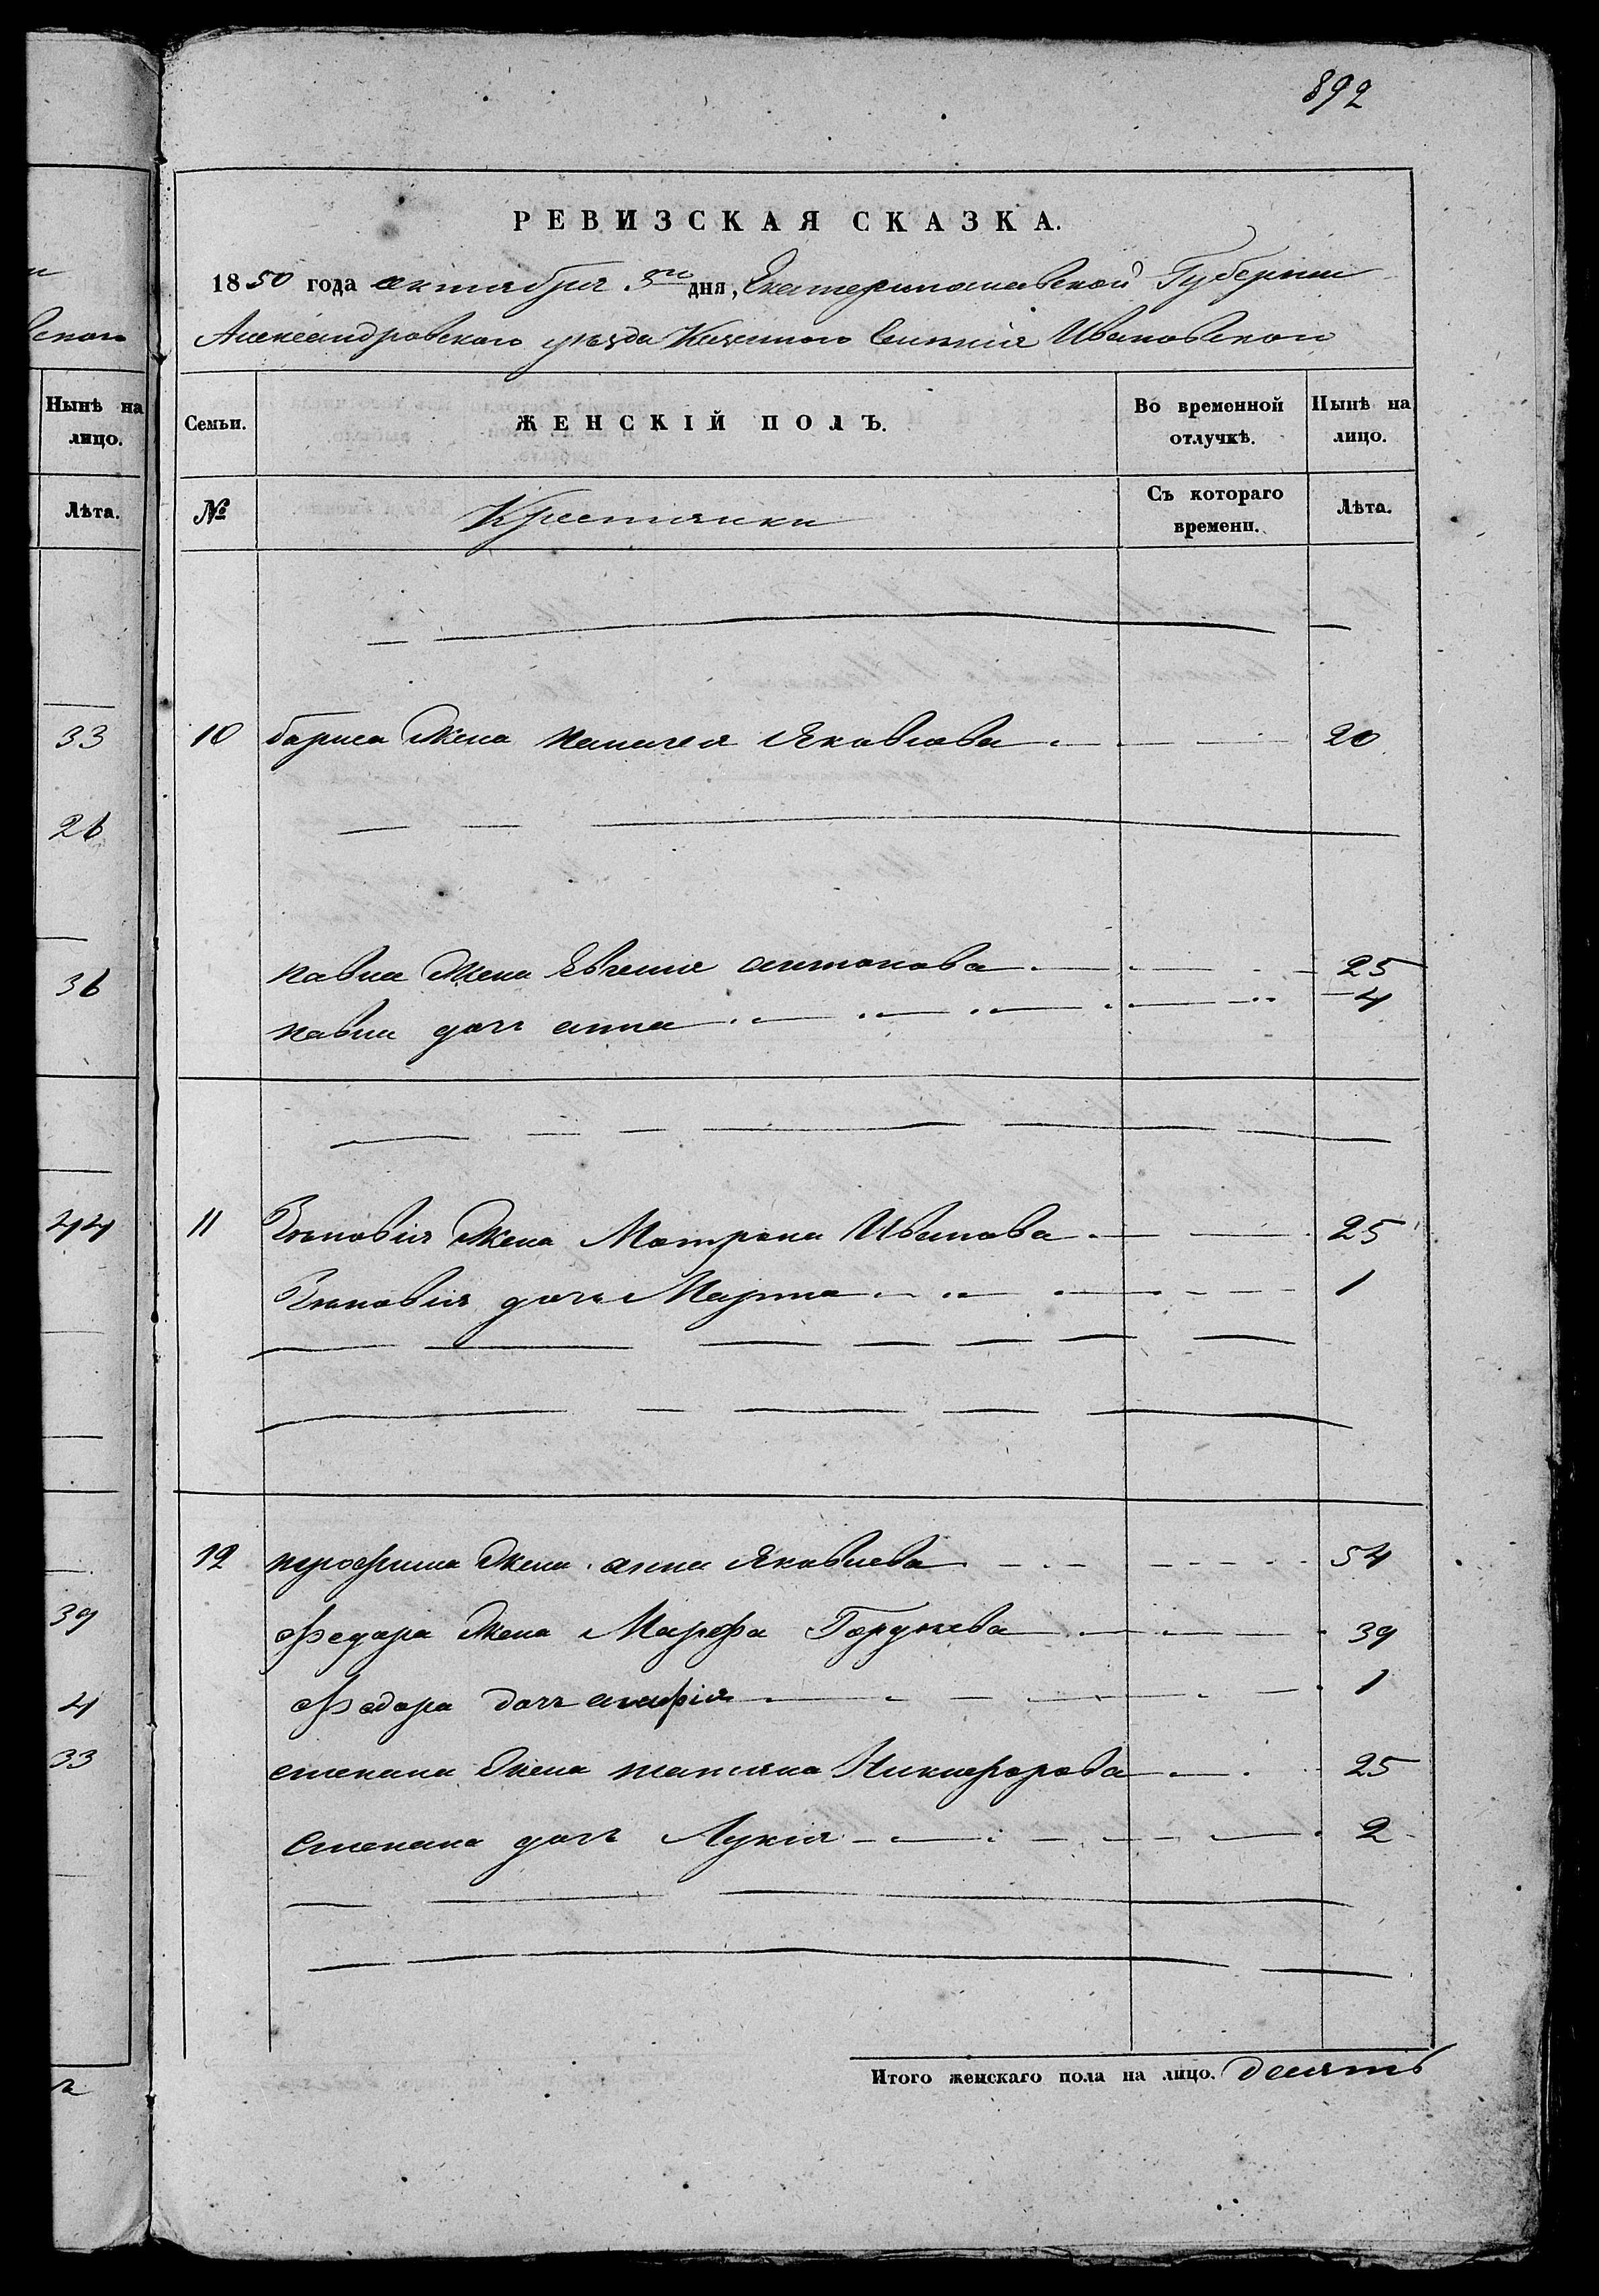 892
РЕВИЗСКАЯ СКАЗКА.
1850 года октября 3го дня, Екатеринославской Губернии
Александровского уезда Казенного Селения Ивановского
Нынѣ на лицо.
Лѣта.
33
26
36
44
39
4
33
Семьи. ЖЕНСКІЙ ПОЛЪ. Во временной отлучкѣ. Нынѣ на лицо.
№ Крестянки Съ котораго времени. Лѣта.
10 бориса Жена пелагея Яковлова 20
павла Жена Евгения антонова 25
павла дочь анна 4
11 Зеновия Жена Матрона Иванова 25
Зеновия дочь Марина 1
12 трофима Жена анна Яковлева 54
Федора Жена Марфа Гордеева 39
Федора дочь агафія 1
степана Жена татияна Никифорова 25
Степана дочь Лукия 2
Итого женскаго пола на лицо. десять